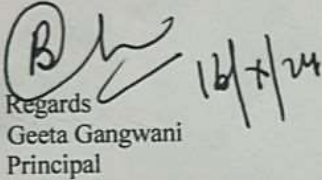 16/x/24
Regards
Geeta Gangwani
Principal